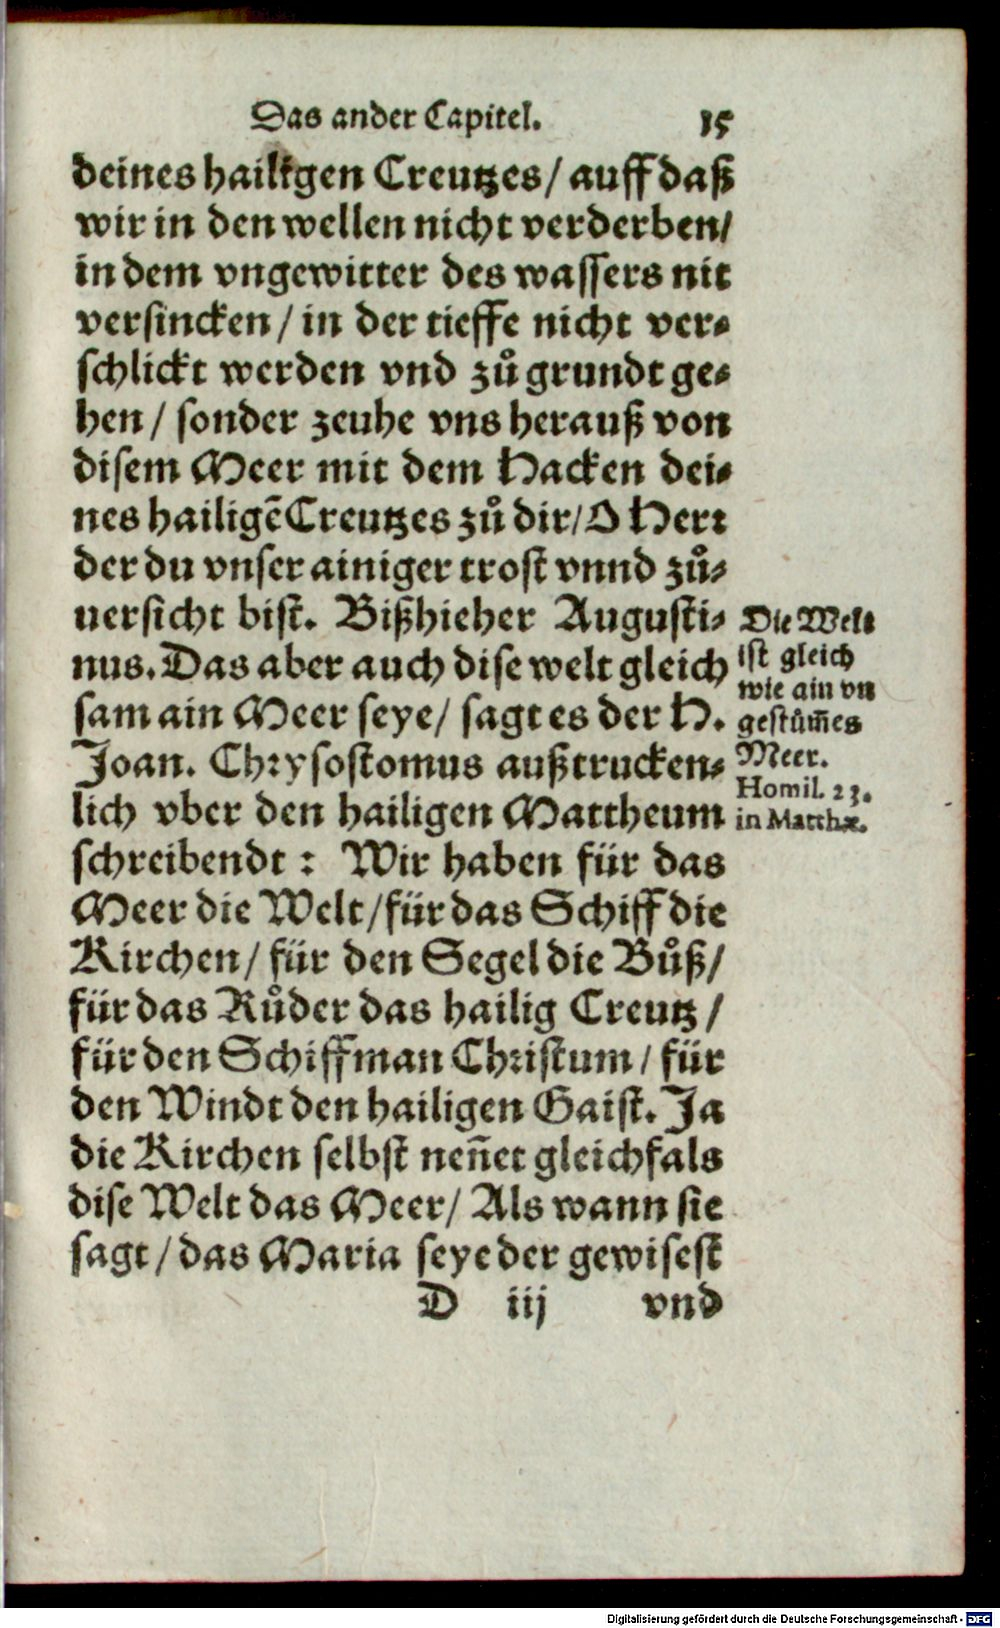 Das ander Capitel. 15
deines hailigen Creutzes / auff daß
wir in den wellen nicht verderben /
in dem vngewitter des wassers nit
versincken / in der tieffe nicht ver-
schlickt werden vnd zů grundt ge-
hen / sonder zeuhe vns herauß von
disem Meer mit dem Hacken dei-
nes hailigẽ Creutzes zů dir / O Herr
der du vnser ainiger trost vnnd zů-
uersicht bist. Bißhieher Augusti-
nus. Das aber auch dise welt gleich
sam ain Meer seye / sagt es der H.
Joan. Chrysostomus außtrucken-
lich vber den hailigen Mattheum
schreibendt : Wir haben für das
Meer die Welt / für das Schiff die
Kirchen / für den Segel die Bůß /
für das Růder das hailig Creutz /
für den Schiffman Christum / für
den Windt den hailigen Gaist. Ja
die Kirchen selbst neñet gleichfals
dise Welt das Meer / Als wann sie
sagt / das Maria seye der gewisest
D iij vnd
Die Welt
ist gleich
wie ain vn
gestům̃es
Meer.
Homil. 23.
in Matthæ.
Digitalisierung gefördert durch die Deutsche Forschungsgemeinschaft - DFG